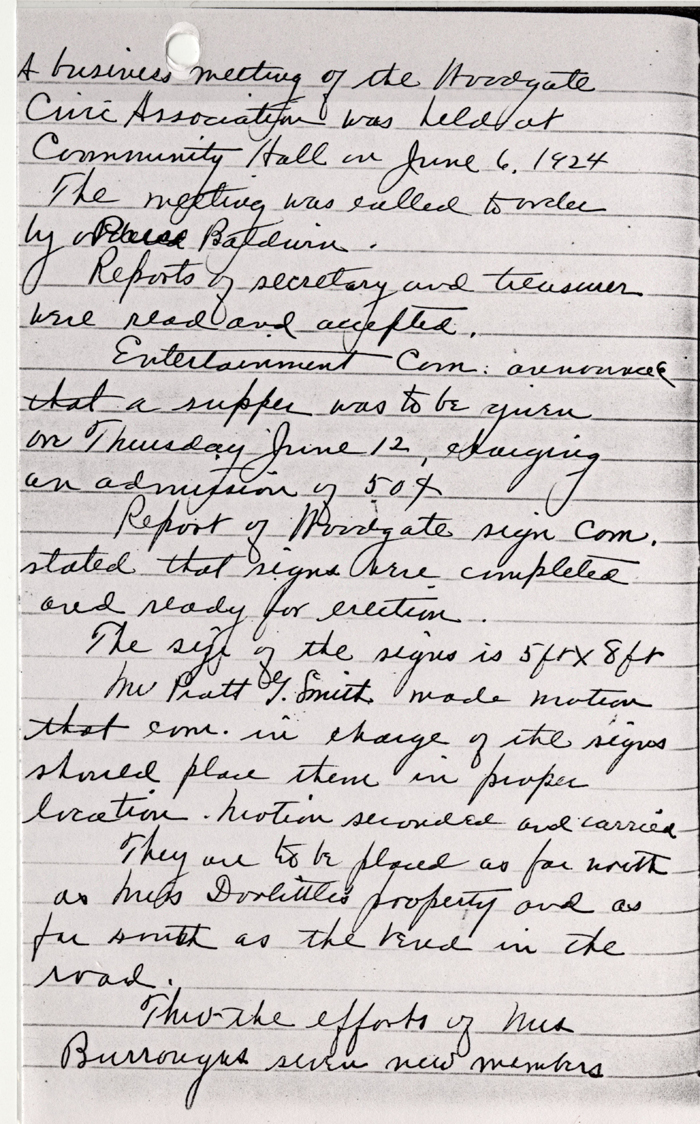 A business meeting of the Woodgate
Civic Association was held at
Community Hall on June 6, 1924
The meeting was called to order
by Baldwin.
Reports of secretary and treasurer
were read and accepted.
Entertainment Com. announced
that a supper was to be given
on Thursday June 12, charging
an admission of 50¢
Report of Woodgate sign Com.
stated that signs were completed
and ready for erection.
The size of the signs is 5ft X 8ft
Mr Pratt G. Smith made motion
that com. in charge of the signs
should place them in proper
location. Motion seconded and carried
They are to be placed as far north
as Miss Doolittles property and as
far south as the bend in the
road.
Thro the efforts of Mrs
Burroughs seven new members